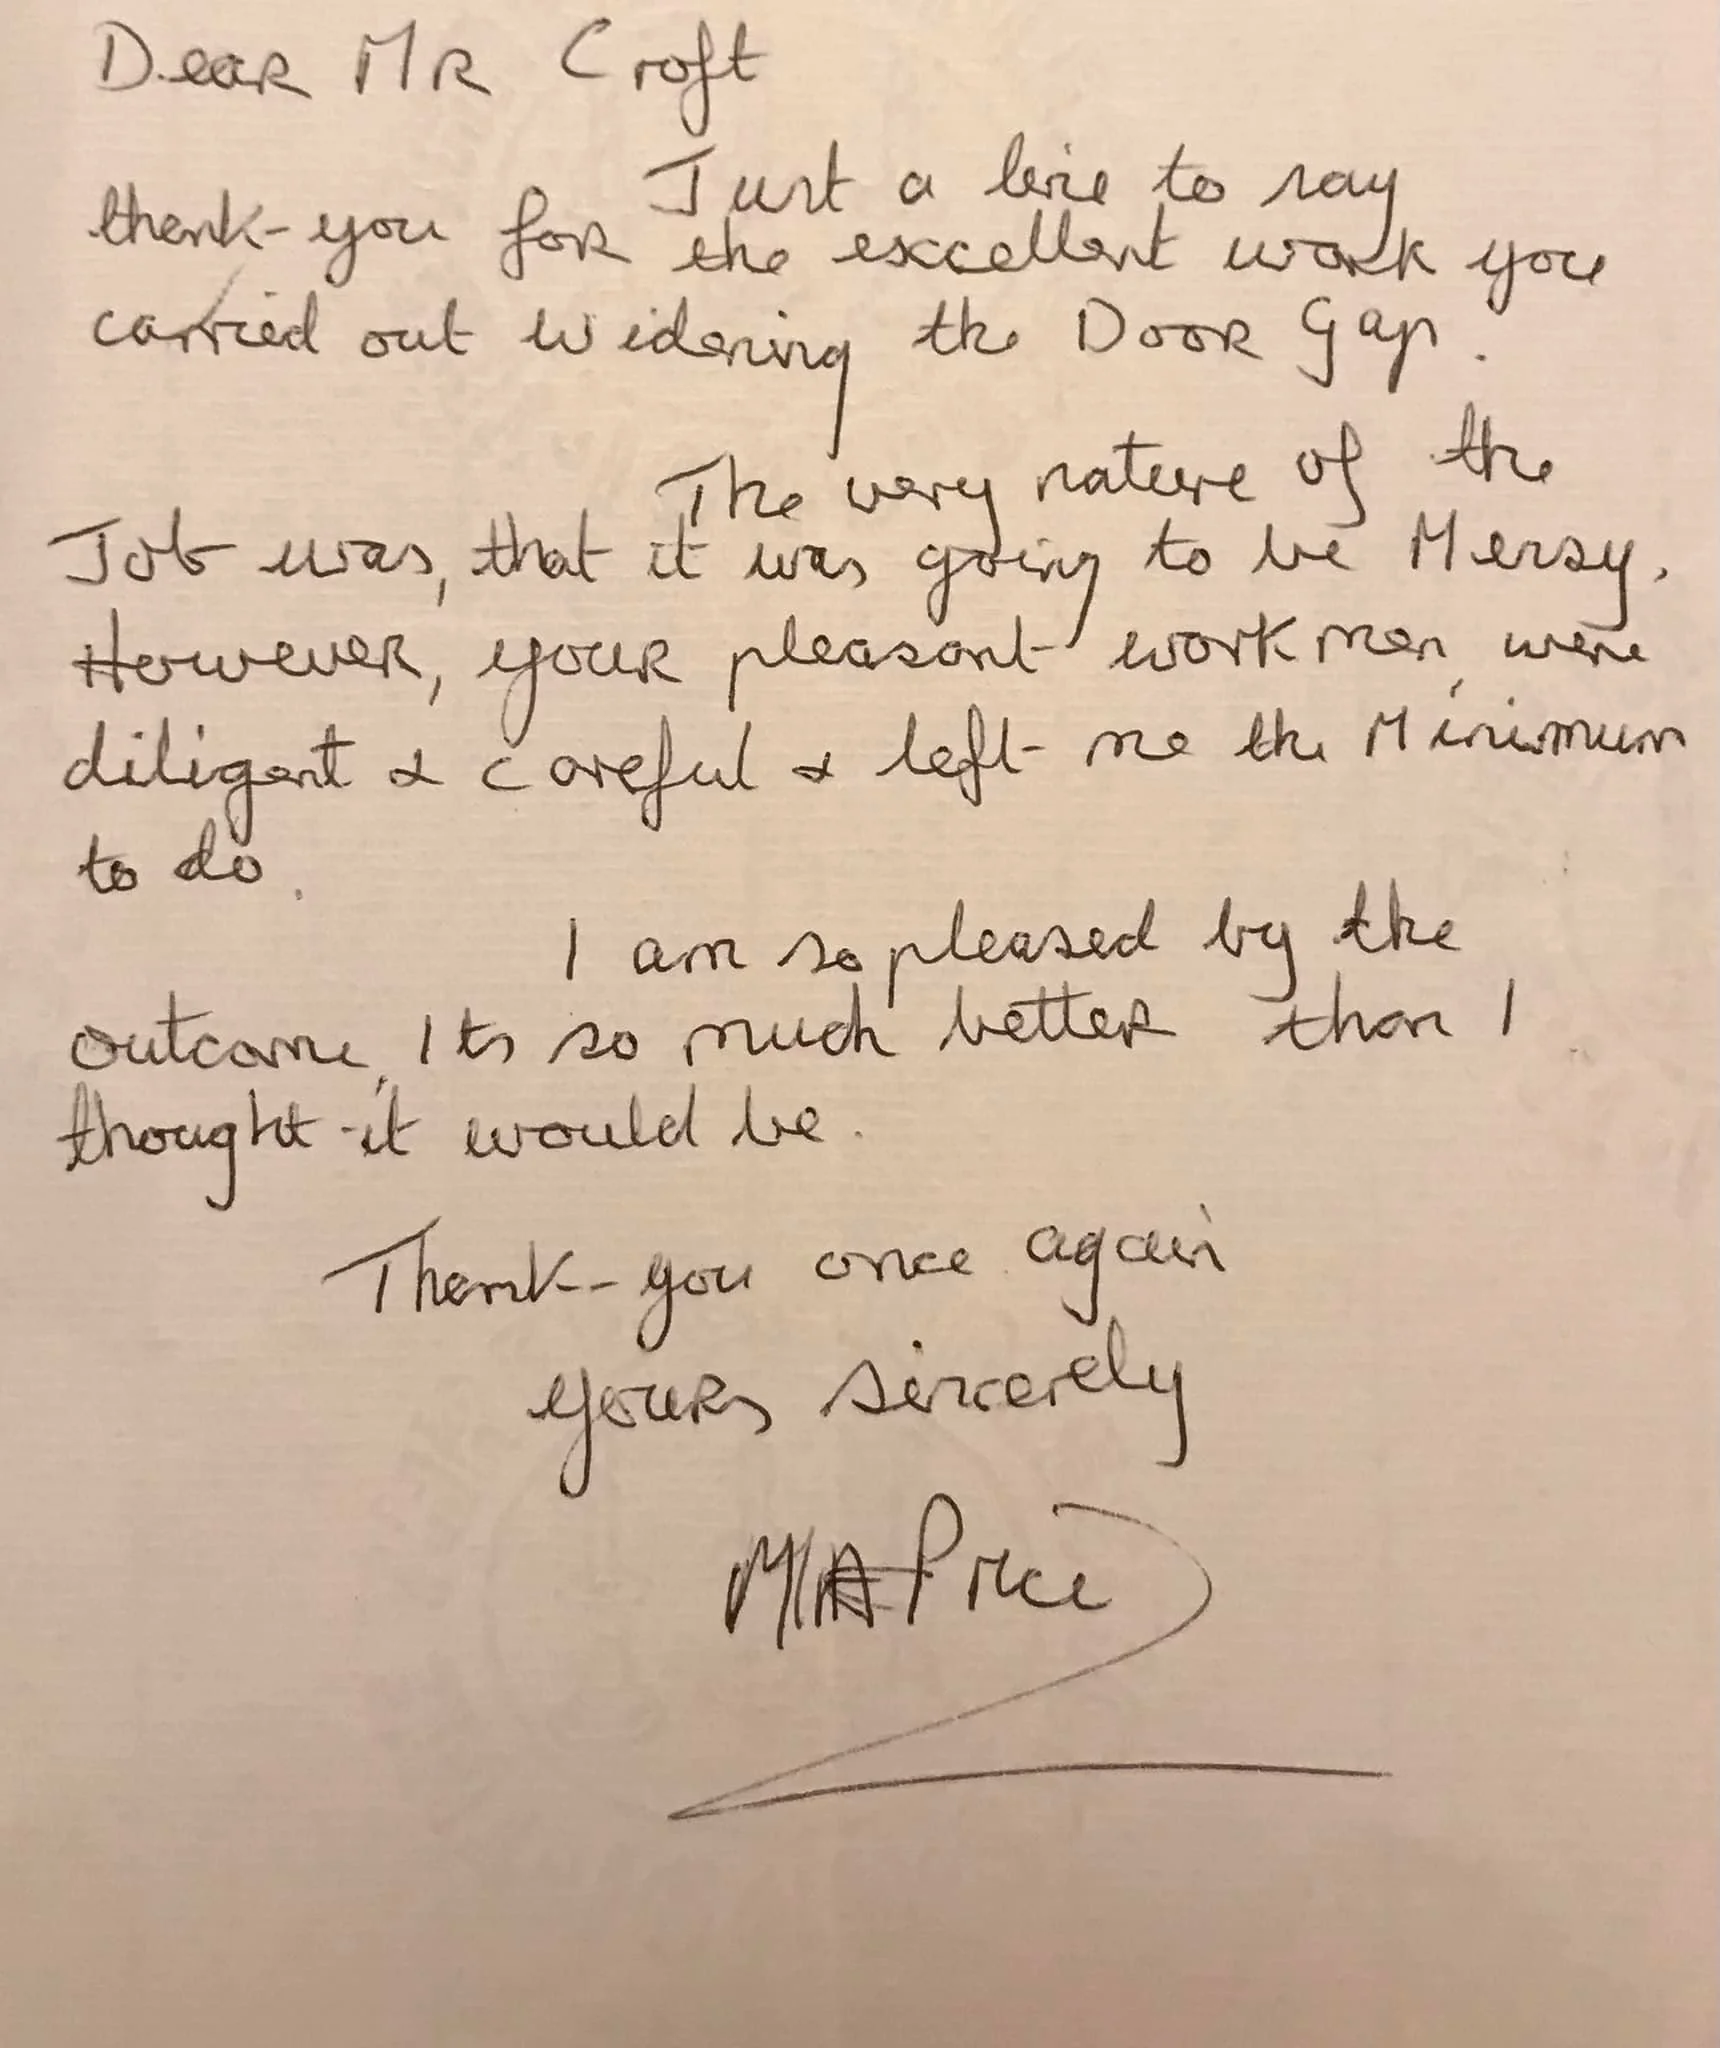 Dear Mr Croft
Just a line to say
thank-you for the excellent work you
carried out widening the Door Gap.
The very nature of the
Job was, that it was going to be Messy.
However, your pleasant workmen, were
diligent & careful & left me the Minimum
to do.
I am so pleased by the
outcome, Its so much better than I
thought it would be.
Thank-you once again
yours sincerely
Price